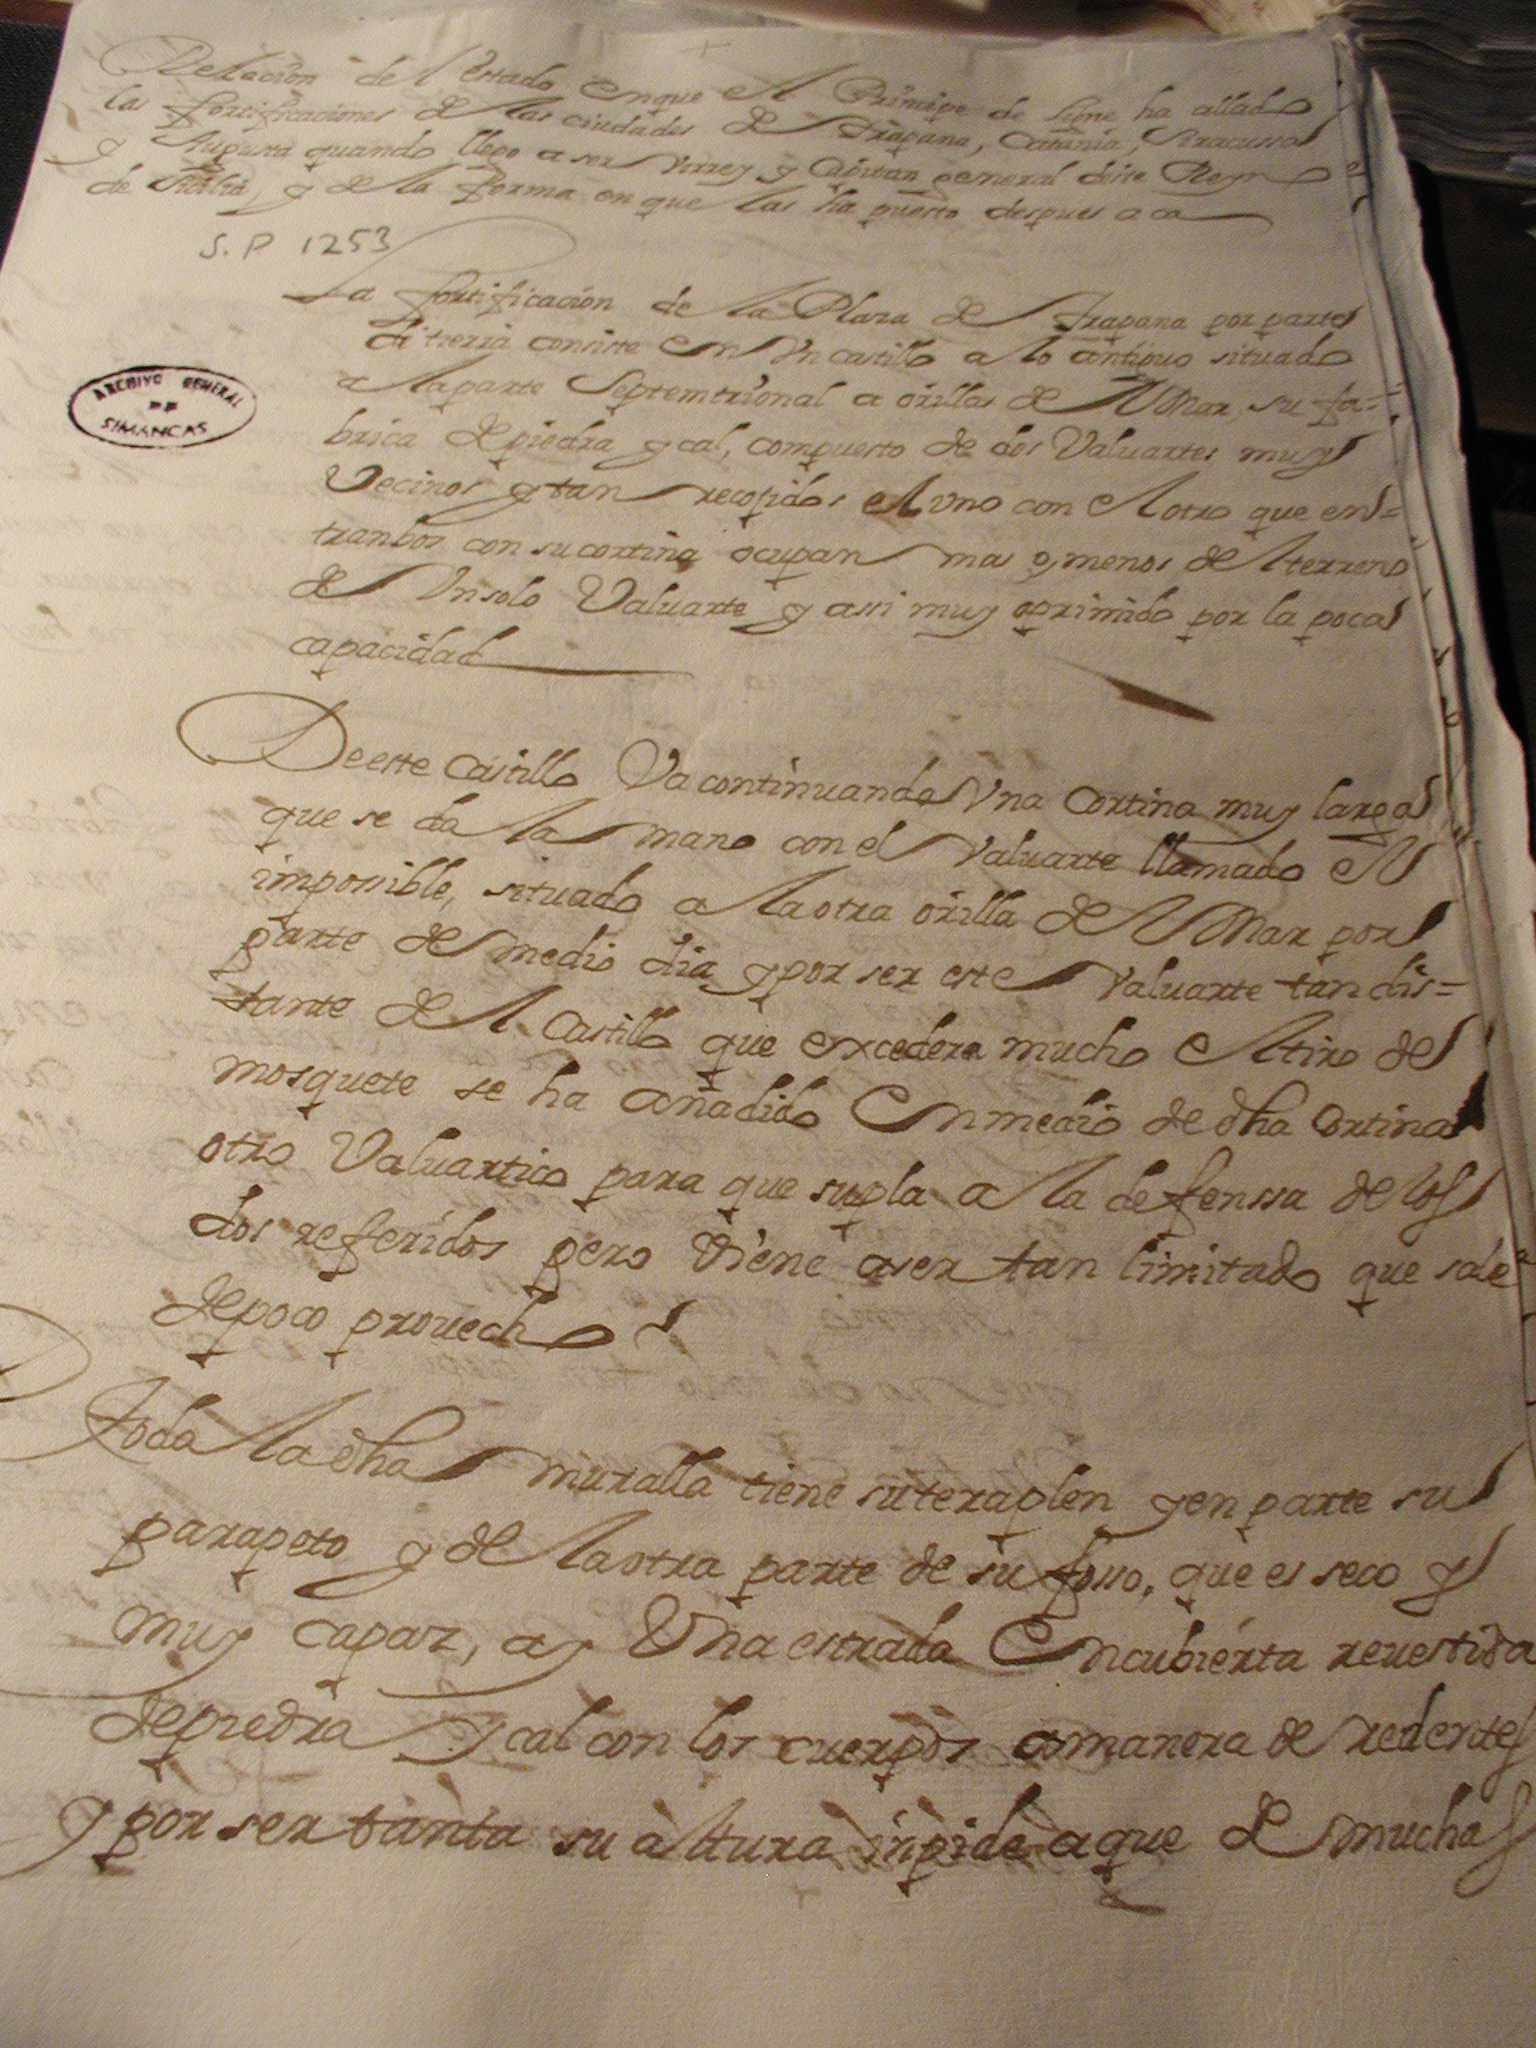 Relacion del estado enque el Principe de Ligne ha allado
las fortificaciones de las ciudades de Trapana, Catania, Siracussa
y Augusta quando llego a ser Virrey y Capitan general deste Reyno
de Sicilia, y de la forma en que las ha puesto despues aca
S.P 1253
La fortificacion de la Plaza de Trapana por parte
di tierra consiste en Un castillo a lo antiguo situado
a la parte Septemtrional a orillas del Mar, su fa=
brica de piedra y cal, compuesto de dos Valuartes muy
Vecinos y tan recogidos el uno con el otro que en=
tranbos con su cortina ocupan mas o, menos del terreno
de Un solo Valuarte y assi muy oprimido por la poca
capacidad
ARCHIVO GENERAL
DE
SIMANCAS
De este Castillo Va continuando Una Cortina muy larga
que se da la mano con el Valuarte llamado el
imposible, situado a la otra orilla del Mar por
parte de medio dia y por ser este Valuarte tan dis=
tante del Castillo que excedera mucho el tiro de
mosquete se ha añadido en medio de dha Cortina
otro Valuartico para que supla a la defenssa de los
dos referidos pero viene aser tan limitado que sale
de poco prouecho
Toda la dha muralla tiene su teraplen y en parte su
parapeto y de la otra parte de su fosso, que es seco y
muy capaz, ay Una estrada Encubierta reuestida
de piedra y cal con los cuerpos a manera de redentes
y por ser tanta su altura inpide a que de mucha